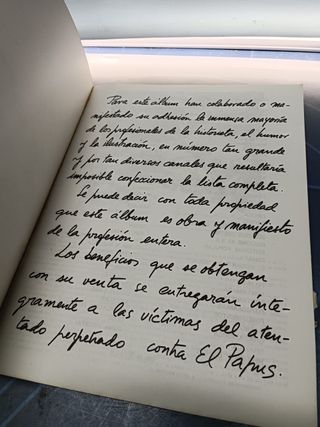 Para este álbum han colaborado o ma-
nifestado su adhesión la inmensa mayoría
de los profesionales de la historieta, el humor
y la ilustración, en número tan grande
y por tan diversos canales que resultaría
imposible confeccionar la lista completa.
Se puede decir con toda propiedad
que este álbum es obra y manifiesto
de la profesión entera.
Los beneficios que se obtengan
con su venta se entregarán ínte-
gramente a las víctimas del aten-
tado perpetrado contra El Papus.